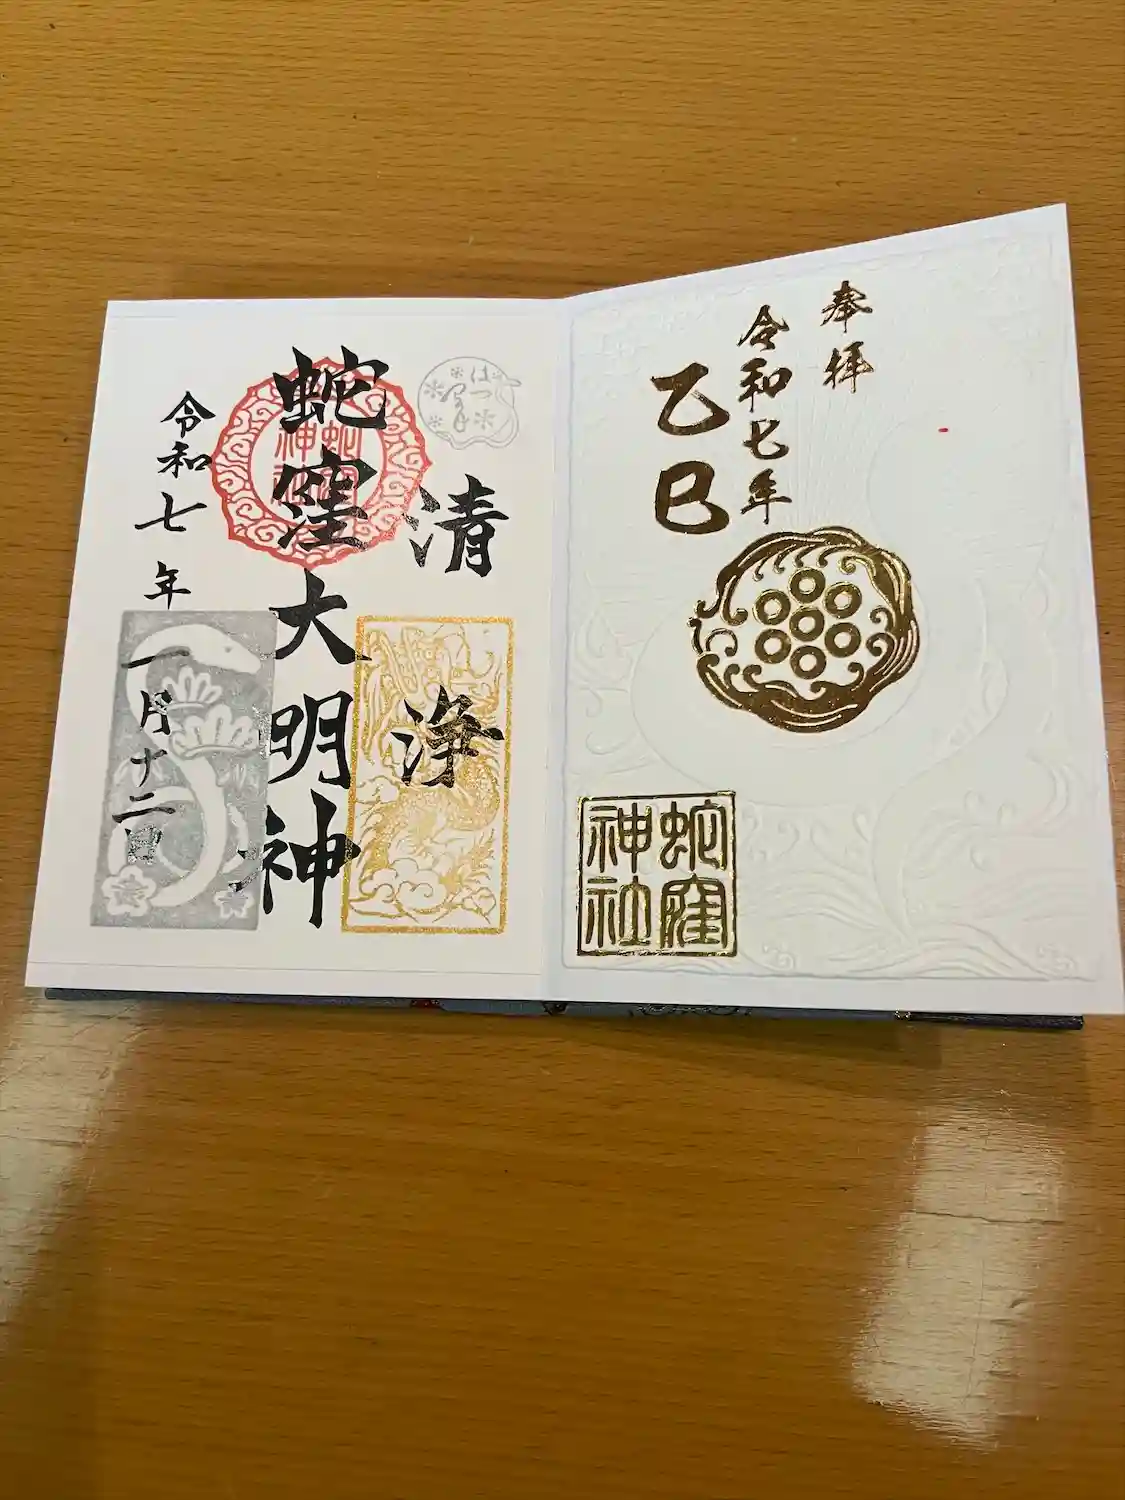 奉拝
令和七年
乙巳
蛇窪
神社
清浄
はつ
蛇窪大明神
蛇窪
神社
令和七年一月十二日